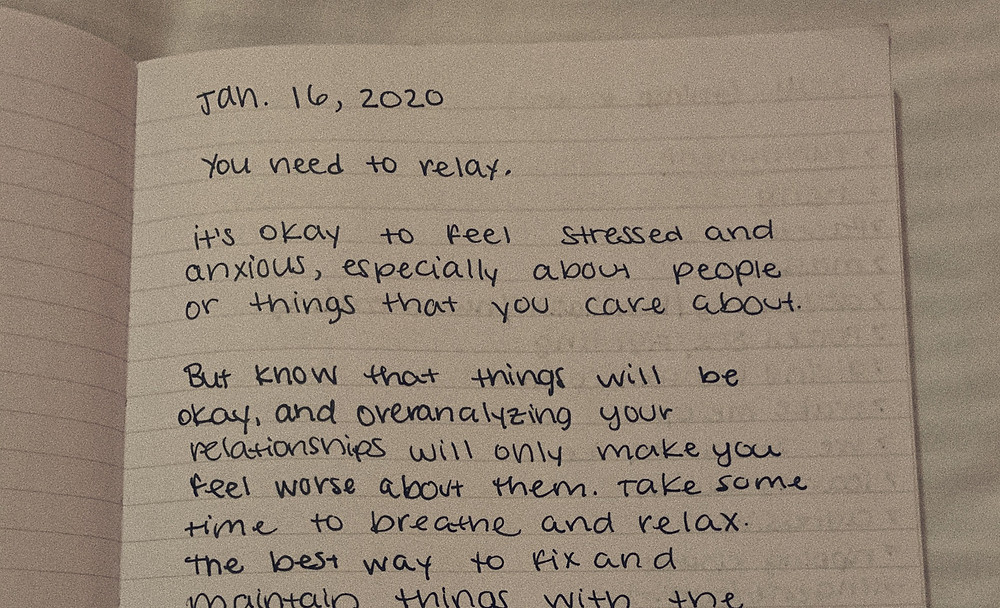 Jan. 16, 2020
You need to relax.
it's okay to feel stressed and
anxious, especially about people
or things that you care about.
But know that things will be
okay, and overanalyzing your
relationships will only make you
feel worse about them. Take some
time to breathe and relax.
the best way to fix and
maintain things with the